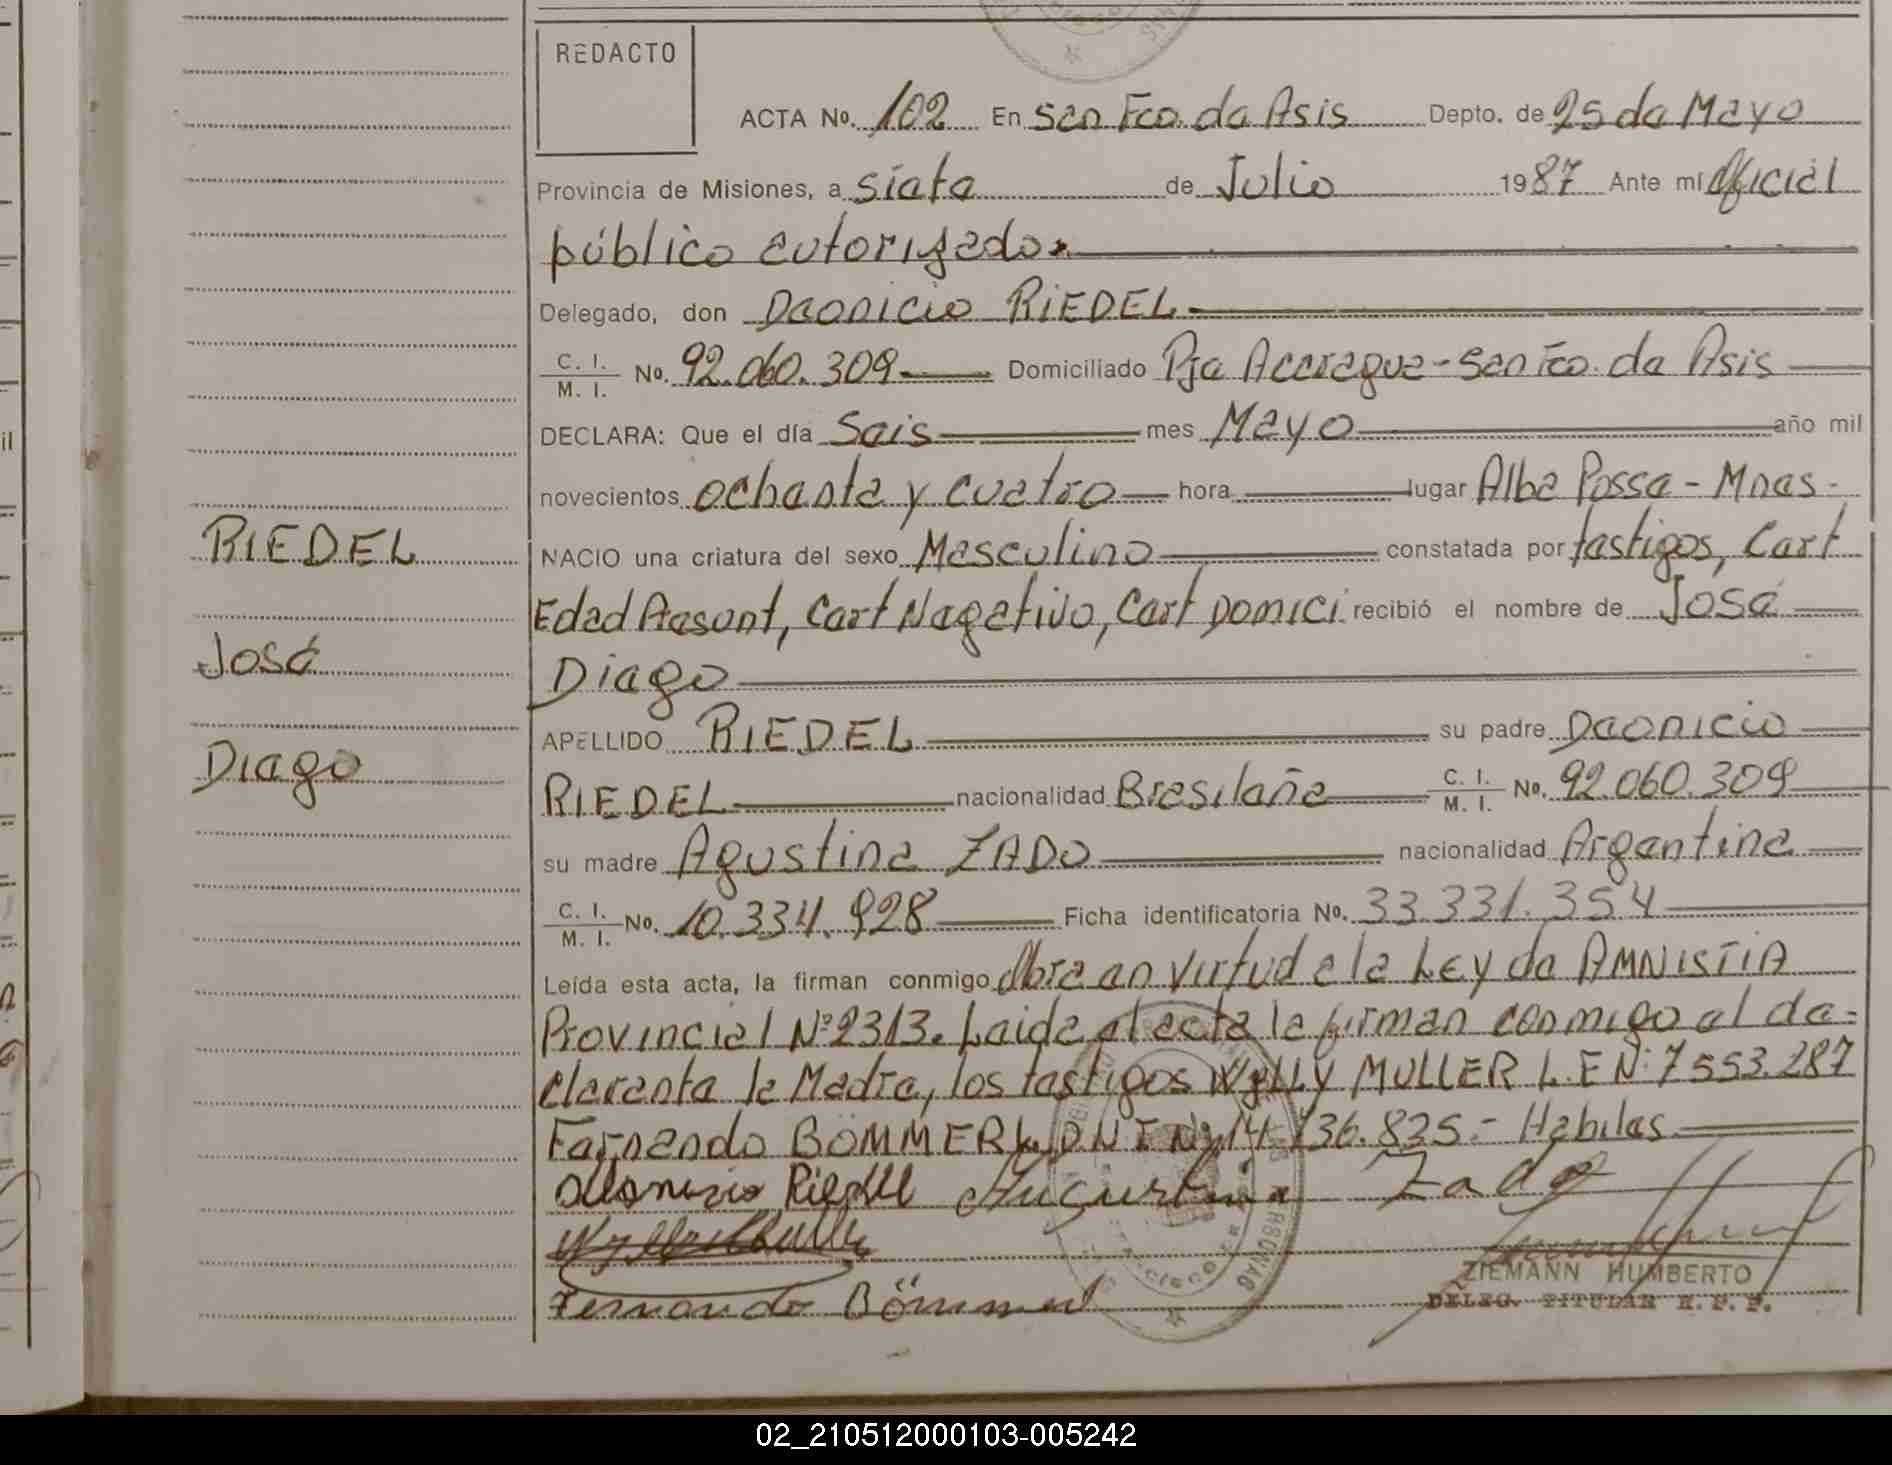 REDACTO
ACTA No. 102 En San Fco. de Asis Depto. de 25 de Mayo
Provincia de Misiones, a siete de Julio 1987 Ante mí Oficial
público autorizado.
Delegado, don Deonicio RIEDEL
C. I. M. I. No. 92.060.309 Domiciliado Pje Acaragua - San Fco. de Asis
DECLARA: Que el día Seis mes Mayo año mil
novecientos ochenta y cuatro hora lugar Alba Posse - Mnes -
RIEDEL
NACIO una criatura del sexo Masculino constatada por testigos, Cert
Edad Aesont, Cert Negativo, Cert Domici. recibió el nombre de José
José
Diego
APELLIDO RIEDEL su padre Deonicio
Diego
RIEDEL nacionalidad Brasileña C. I. M. I. No. 92.060.309
su madre Agustina ZADO nacionalidad Argentina
C. I. M. I. No. 10.334.928 Ficha identificatoria No. 33.331.354
Leída esta acta, la firman conmigo Obra en virtud a la Ley de AMNISTIA
Provincial Nº 2313. Leida el acta la firman conmigo el de-
clarante la Madre, los testigos Wylly MULLER L.E Nº 7553.287
Fernando BÖMMER D.N.I Nº 14.736.825.- Habiles
Dionizio Riedel Augustina Zado
Fernando Bömmer
ZIEMANN HUMBERTO
DELEG. TITULAR R. P. P.
02_210512000103-005242